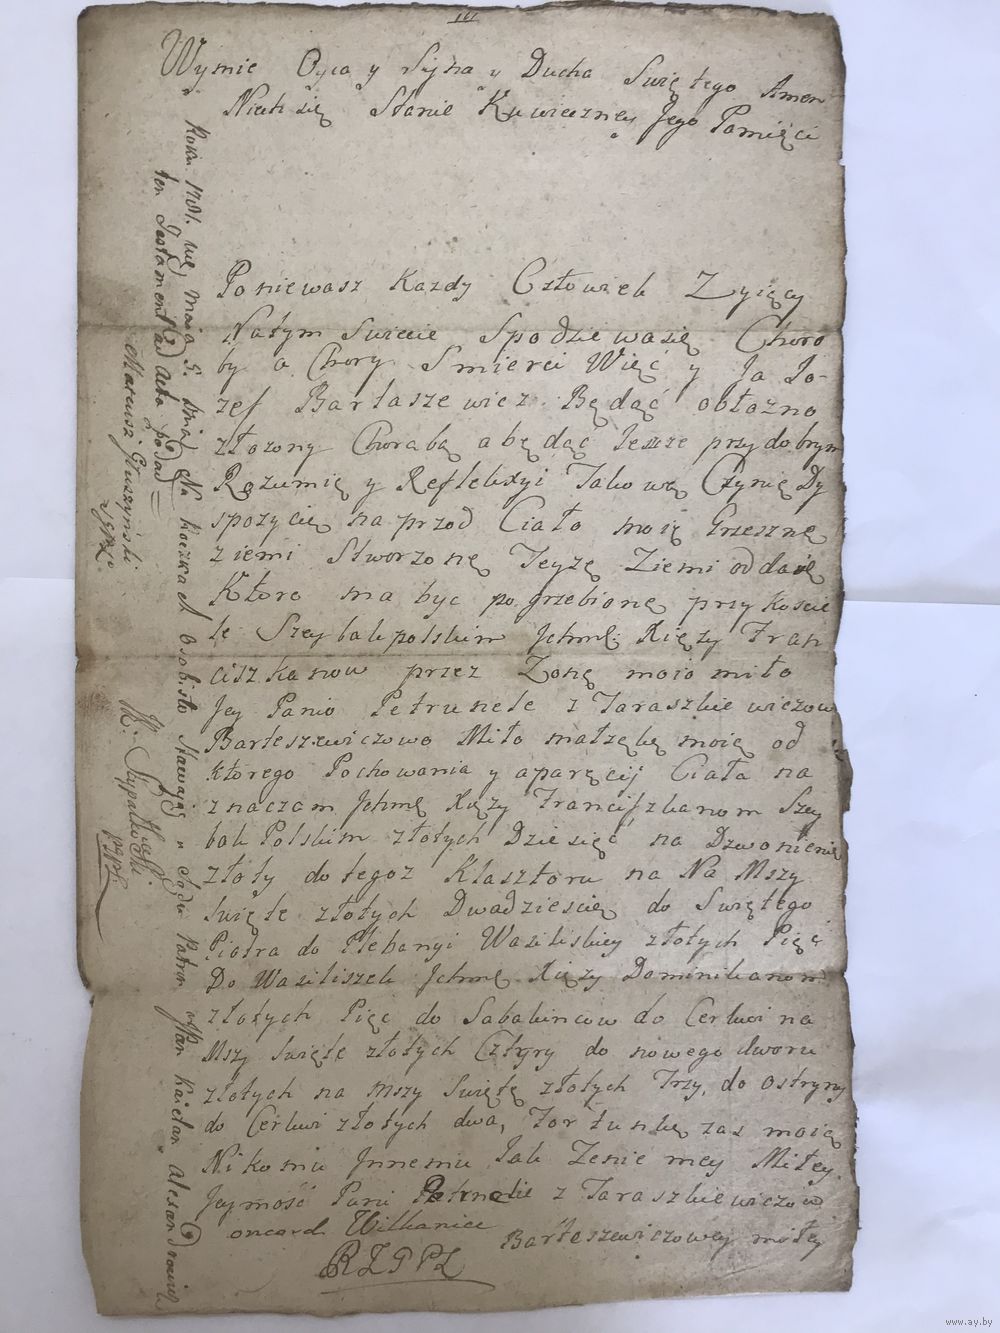 Wymie Oyca y Syna y Ducha Swiętego Amen
Niech się Stanie Kuwieczney Jego Pamięci
Poniewasz Kazdy Człowiek Zyięcy
Natym Swiecie Spodziewasię Choro
by a Chory Smierci Więc y Ja Jo-
zef Bartaszewicz Będąć obłozno
złozony Chorabą abędąć Jeszze przydobrym
Rozumię y Reflekxyi Takowę Czynię Dy
spozycię naprzod Ciało moię Grzeszne
ziemi Stworzonę Teyzę Ziemi oddaię
Ktoro ma byc pogrzebionę przy Kosciele
le Szeybakpolskim Jchmę Xięzy Fran
ciszkanow przez Zonę moio miło
Jey Panio Petrunele z Taraszkiewiczow
Barteszewiczowo Miło małzękę moię od
ktorego Pochowania y aparęcij Ciała na
znaczam Jchmę Xięzy Franciszkanom Szey
bak Polskim złotych Dziesięc na Dzwonienie
złoty do tegoz Klasztoru na Na Mszy
Swięte złotych Dwadziescię do Swiętego
Piotra do Plebanyi Wasiliskiey złotych Pięc
Do Wasiliszek Jchmę Xięzy Dominikanom
złotych Pięc do Sobakincow do Cerkwi na
Mszy Swięte złotych Cztyry do nowego dworu
złotych na Mszy Swiętę złotych Trzy, do ostryny
do Cerkwi złotych dwa, Fortunkę zas moię
Nikomu Jnnemu Jak Zenie mey Miłey
Jeymość Pani Petrneli z Taraszkiewiczow
Barteszewiczowey miłey
RZGPL
Roku 1781. mca maia 5. Dnia Na Roczkach osobisto stawaiąc u Sądu Patron JPan Kaietan Alexandrowicz
ten Testament ad acta podał
Mateusz Głuszyński